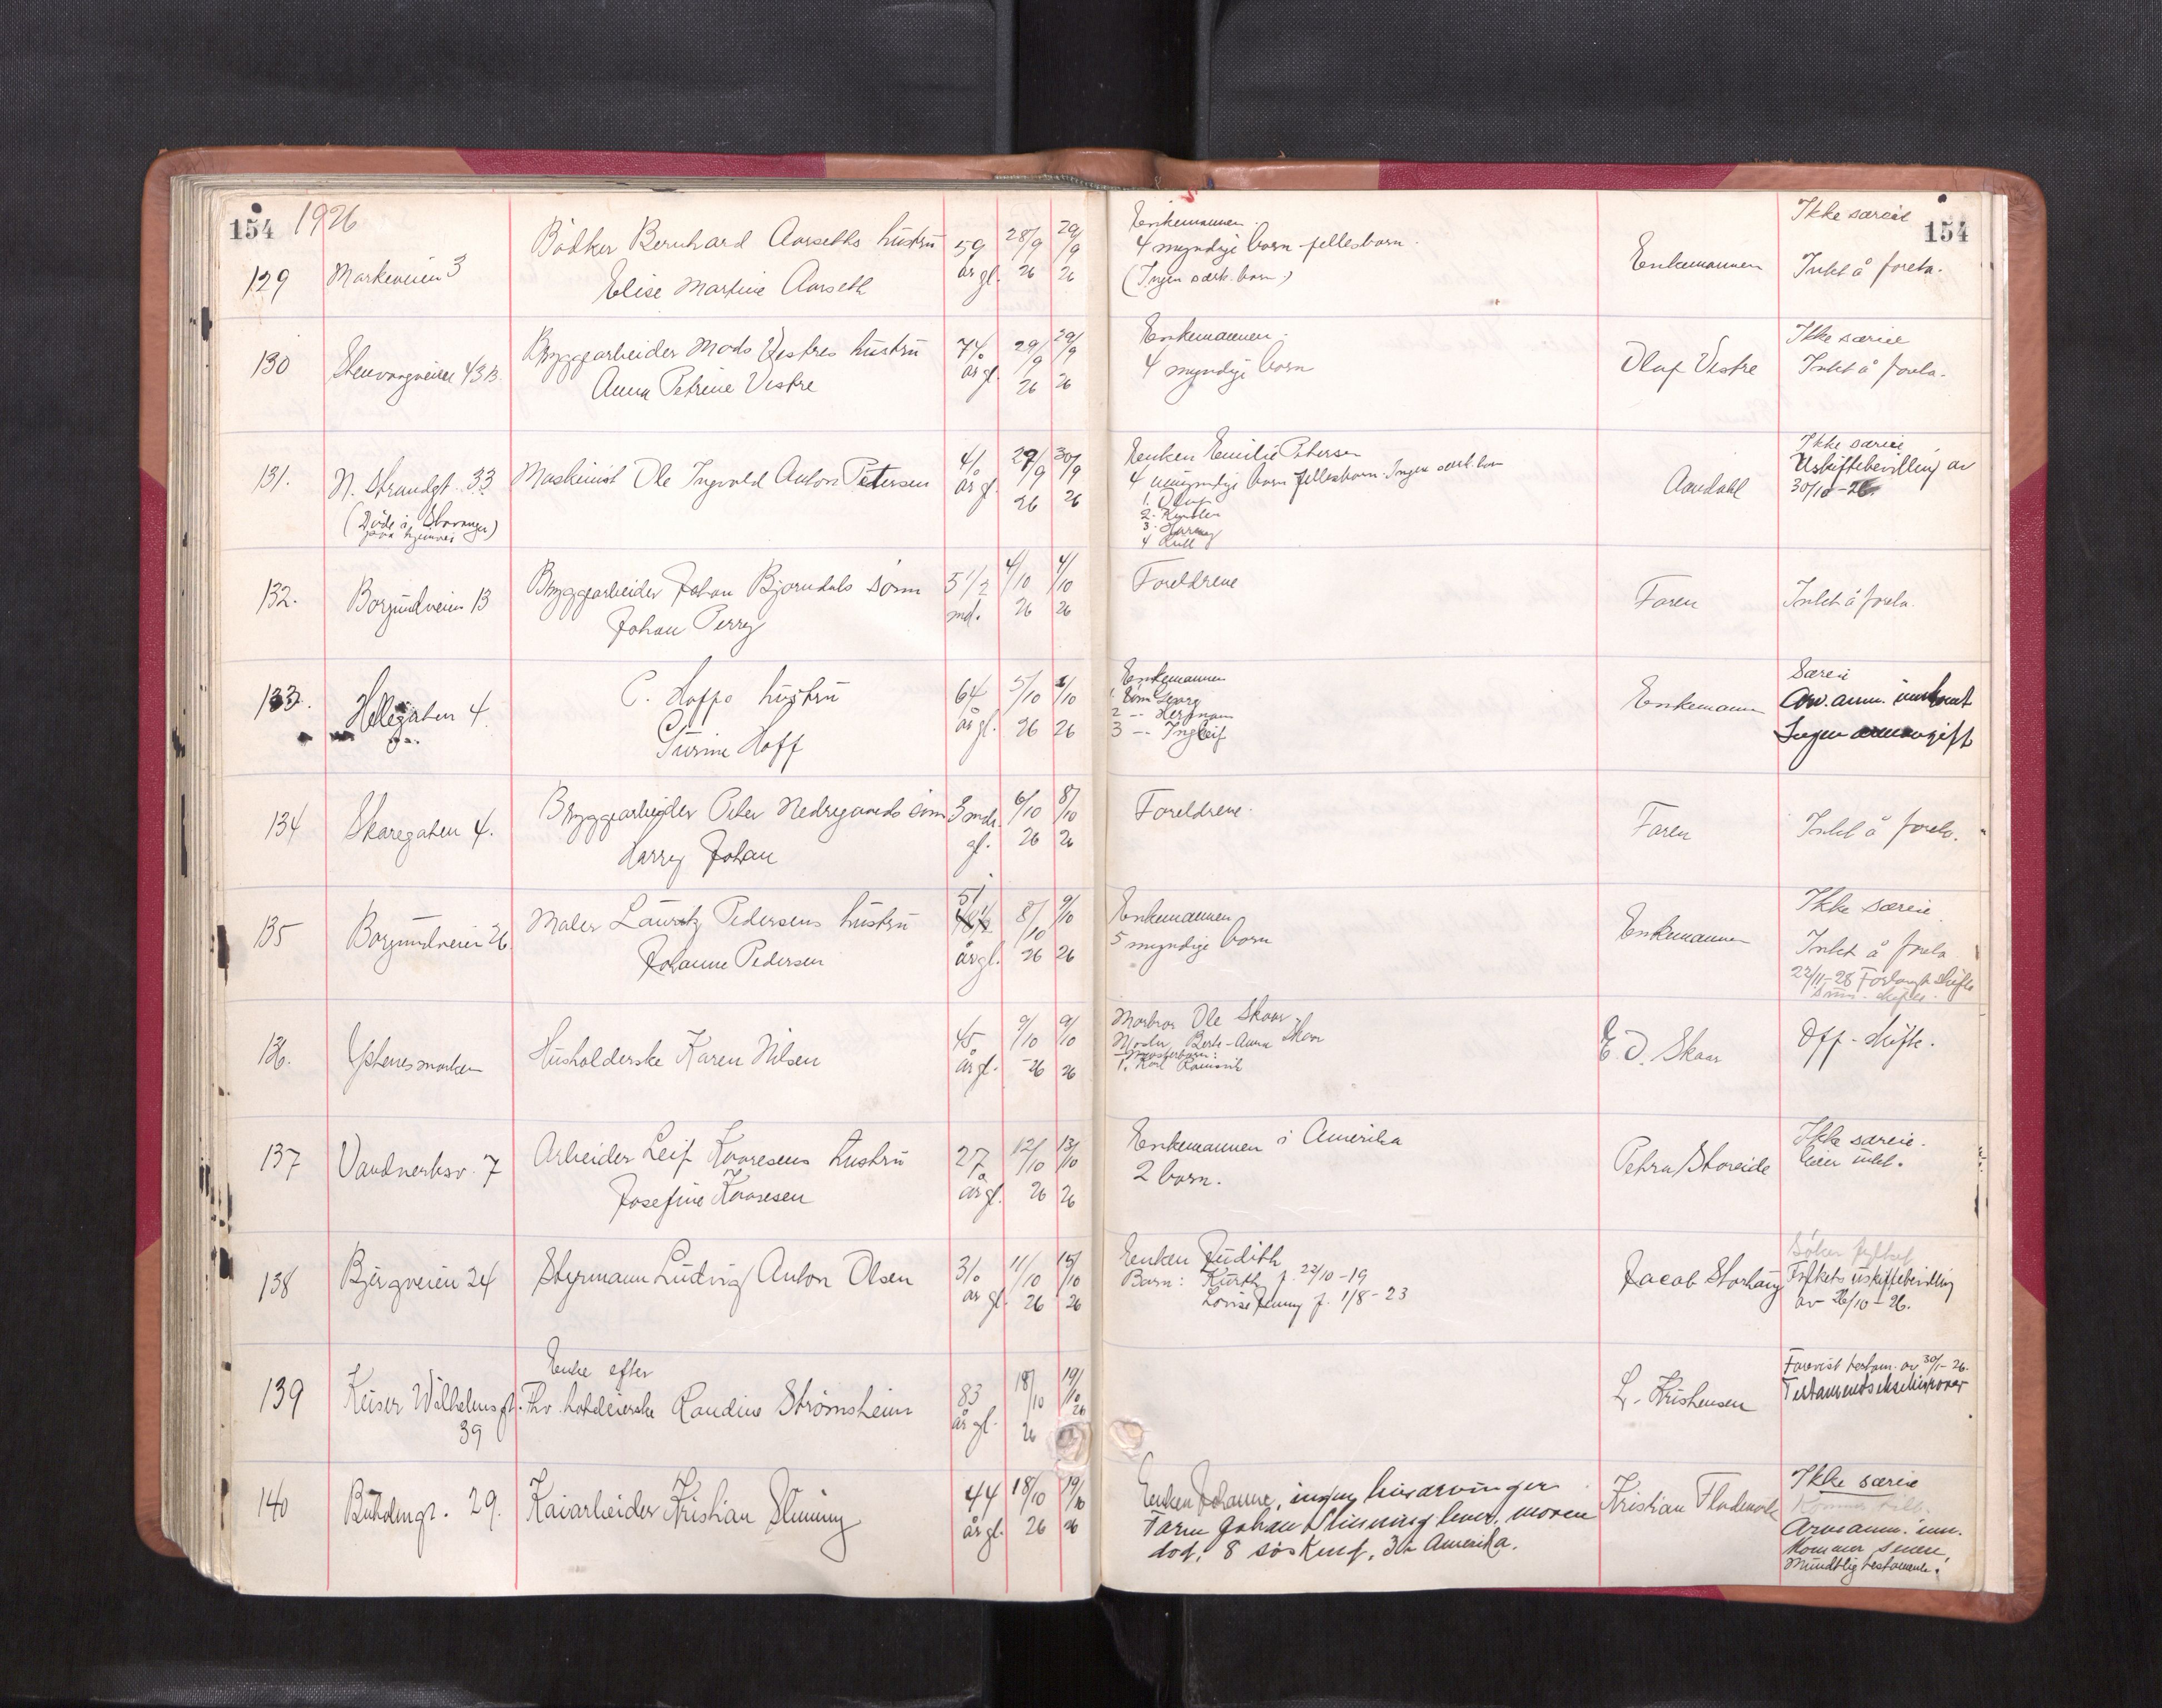 154 1926
129 Markeveien 3 Bödker Bernhard Aarseths hustru 59 28/9 29/9
Elise Martine Aarseth år gl. 26 26
130 Stenvaagveien 43 B. Bryggearbeider Mads Vestres hustru 74 29/9 29/9
Anna Petrine Vestre år gl. 26 26
131. N. Strandgt. 33 Maskinist Ole Ingvald Anton Petersen 41 27/9 30/9
(Døde i Stavanger) år gl. 26 26
132. Borgundveien 13 Bryggearbeider Johan Bjørndals sønn 5 1/2 4/10 4/10
Johan Perry md. 26 26
133. Hellegaten 4. C. Hoffs hustru 64 5/10 /10
Turine Hoff år gl. 26 26
134 Skaregaten 4. Bryggearbeider Peter Nedregaards sönn 3 mdr. 6/10 8/10
Harry Johan gl. 26 26
135 Borgundveien 26 Maler Lauritz Pedersens hustru 51 8/10 9/10
Johanne Pedersen år gl. 26 26
136. Ystenesmarken Husholderske Karen Nilsen 45 9/10 9/10
år gl. 26 26
137 Vandverksv. 7 Arbeider Leif Kaaresens hustru 27 12/10 13/10
Josefine Kaaresen år gl. 26 26
138 Bjørgveien 24 Styrmann Ludvig Anton Olsen 31 11/10 15/10
år gl. 26 26
Enke efter
139 Keiser Wilhelms gt. Fhv. Randine Strömsheim 83 18/10 19/10
39 år gl. 26 26
140 Buholmgt. 29. Kaiarbeider Kristian Slinning 44 18/10 19/10
år gl. 26 26
154
Enkemannen. Ikke særeie
4 myndige barn fellesbarn. Enkemannen Intet å foreta.
(Ingen særk. barn)
Enkemannen. Ikke særeie
4 myndige barn Olaf Vestre Intet å foreta.
Enken Emilie Petersen Ikke særeie
4 umyndige barn fellesbarn. Ingen særk. barn Aandahl Uskiftebevilling av
1. Olaf 30/10-26
2.
3.
4
Foreldrene Faren Intet å foreta.
Enkemannen Særeie
1. Sønn Georg Enkemannen Arv. anm. innkomt
2 -- Hergman Ingen
3 -- Ingleif
Foreldrene. Faren Intet å foreta.
Enkemannen Ikke særeie.
5 myndige barn Enkemannen Intet å foreta
22/11-28 Forlangt skifte
Morbror Ole Skaar E. O. Skaar Off. skifte.
Moster Berte-Anna Skaar
1. Karl
Enkemannen i Amerika Petra Storeide Ikke særeie.
2 barn. Eier intet.
Enken Judith Søker fylket
Barn: f. 22/10-19 Jacob Storhaug Fylkets uskiftebevilling
Lovise Jenny f. 1/8-23 av 26/10-26.
L. Kristensen Forevist testam. av 30/1-26.
Enken Johanne, ingen livsarvinger Kristian Ikke særeie
Faren Johan Slinning lever, moren
død, 8 søsken, 3 i Amerika. Arvsanm. inn.
kommer senere.
Mundtlig testamente.